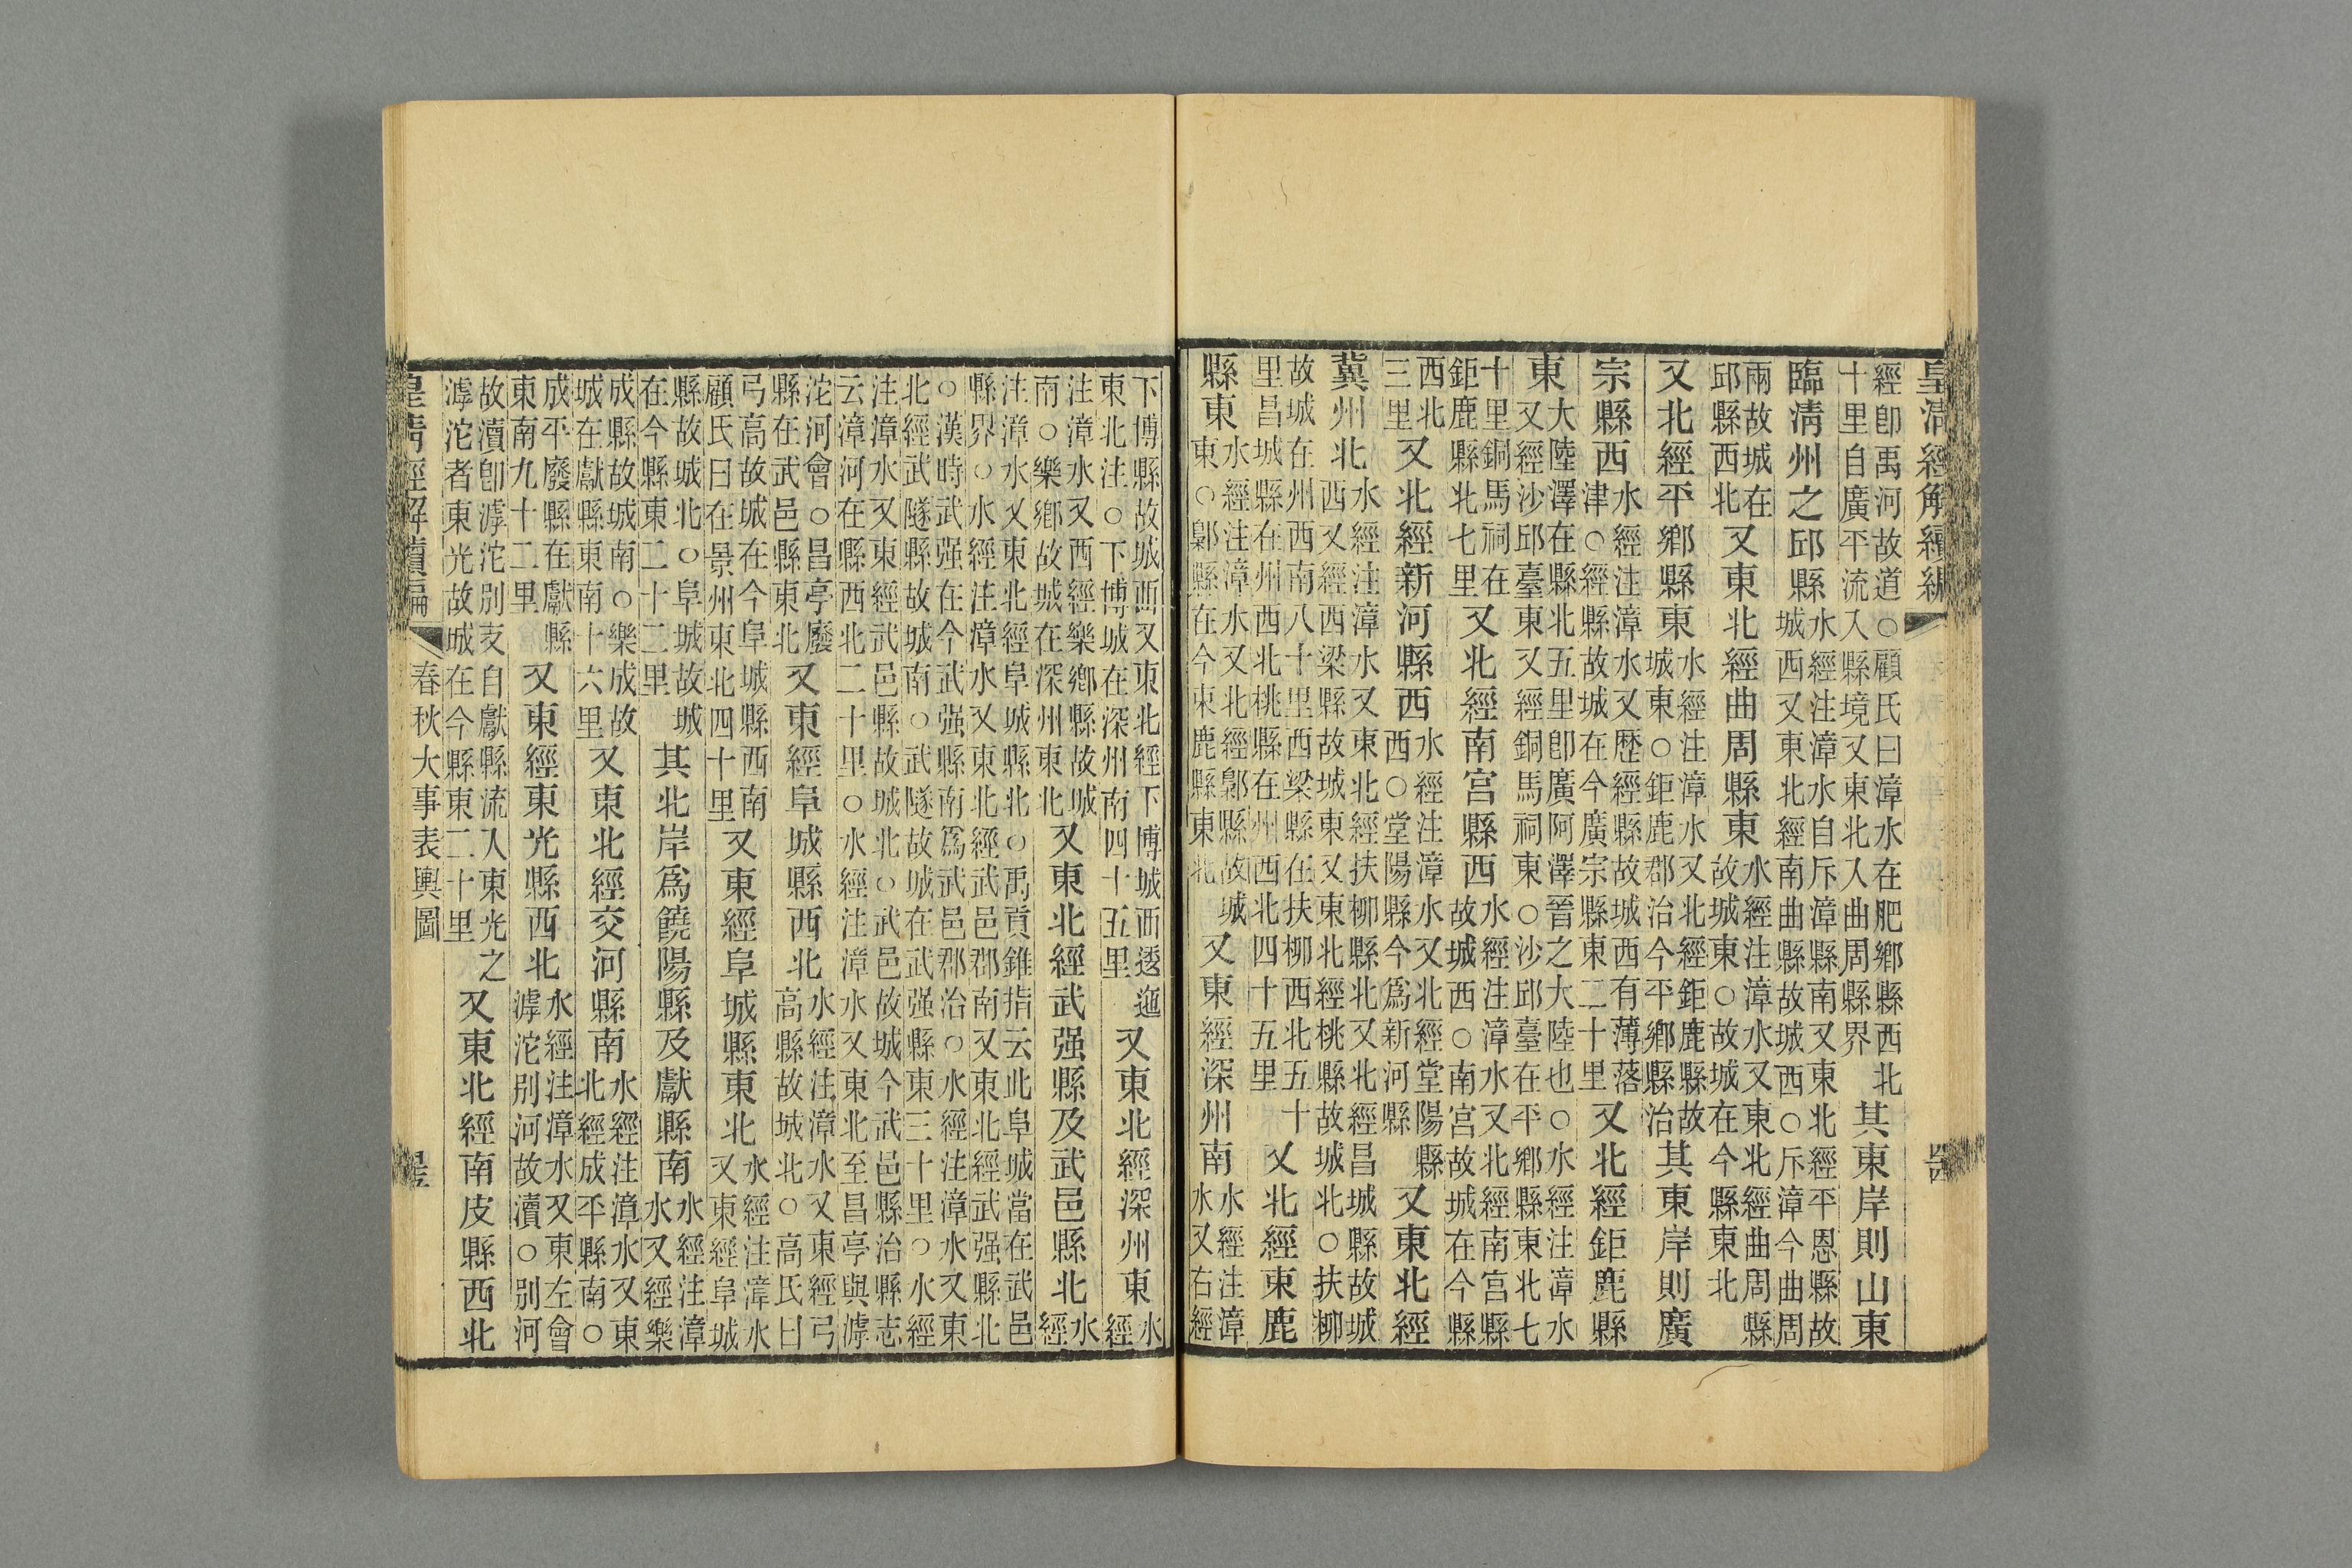 皇清經解續編
經卽禹河故道○顧氏曰漳水在肥鄉縣西北
十里自廣平流入縣境又東北入曲周縣界
其東岸則山東
臨清州之邱縣
水經注漳水自斥漳縣南又東北經平恩縣故
城西又東北經南曲縣故城西○斥漳今曲周
兩故城在
邱縣西北
又東北經曲周縣東
水經注漳水又東北經曲周縣
故城東○故城在今縣東北
又北經平鄉縣東
水經注漳水又北經鉅鹿縣故
城東○鉅鹿郡治今平鄉縣治
其東岸則廣
宗縣西
水經注漳水又歷經縣故城西有薄落
津○經縣故城在今廣宗縣東二十里
又北經鉅鹿縣
東
大陸澤在縣北五里卽廣阿澤晉之大陸也○水經注漳水
又經沙邱臺東又經銅馬祠東○沙邱臺在平鄉縣東北七
十里銅馬祠在
鉅鹿縣北七里
又北經南宮縣西
水經注漳水又北經南宮縣
故城西○南宮故城在今縣
西北
三里
又北經新河縣西
水經注漳水又北經堂陽縣
西○堂陽縣今爲新河縣
又東北經
冀州北
水經注漳水又東北經扶柳縣北又北經昌城縣故城
西又經西梁縣故城東又東北經桃縣故城北○扶柳
故城在州西南八十里西梁縣在扶柳西北五十
里昌城縣在州西北桃縣在州西北四十五里
又北經東鹿
縣東
水經注漳水又北經鄡縣故城
東○鄡縣在今東鹿縣東北
又東經深州南
水經注漳
水又右經
下博縣故城西又東北經下博城西逶迤
東北注○下博城在深州南四十五里
又東北經深州東
水
經
注漳水又西經樂鄉縣故城
南○樂鄉故城在深州東北
又東北經武强縣及武邑縣北
水
經
注漳水又東北經阜城縣北○禹貢錐指云此阜城當在武邑
縣界○水經注漳水又東北經武邑郡南又東北經武强縣北
○漢時武强在今武强縣南爲武邑郡治○水經注漳水又東
北經武隧縣故城南○武隧故城在武强縣東三十里○水經
注漳水又東經武邑縣故城北○武邑故城今武邑縣治縣志
云漳河在縣西北二十里○水經注漳水又東北至昌亭與滹
沱河會○昌亭廢
縣在武邑縣東北
又東經阜城縣西北
水經注漳水又東經弓
高縣故城北○高氏曰
弓高故城在今阜城縣西南
顧氏曰在景州東北四十里
又東經阜城縣東北
水經注漳水
又東經阜城
縣故城北○阜城故城
在今縣東二十二里
其北岸爲饒陽縣及獻縣南
水經注漳
水又經樂
成縣故城南○樂成故
城在獻縣東南十六里
又東北經交河縣南
水經注漳水又東
北經成平縣南○
成平廢縣在獻縣
東南九十二里
又東經東光縣西北
水經注漳水又東左會
滹沱別河故瀆○別河
故瀆卽滹沱別支自獻縣流入東光之
滹沱者東光故城在今縣東二十里
又東北經南皮縣西北
皇清經解續編
春秋大事表輿圖